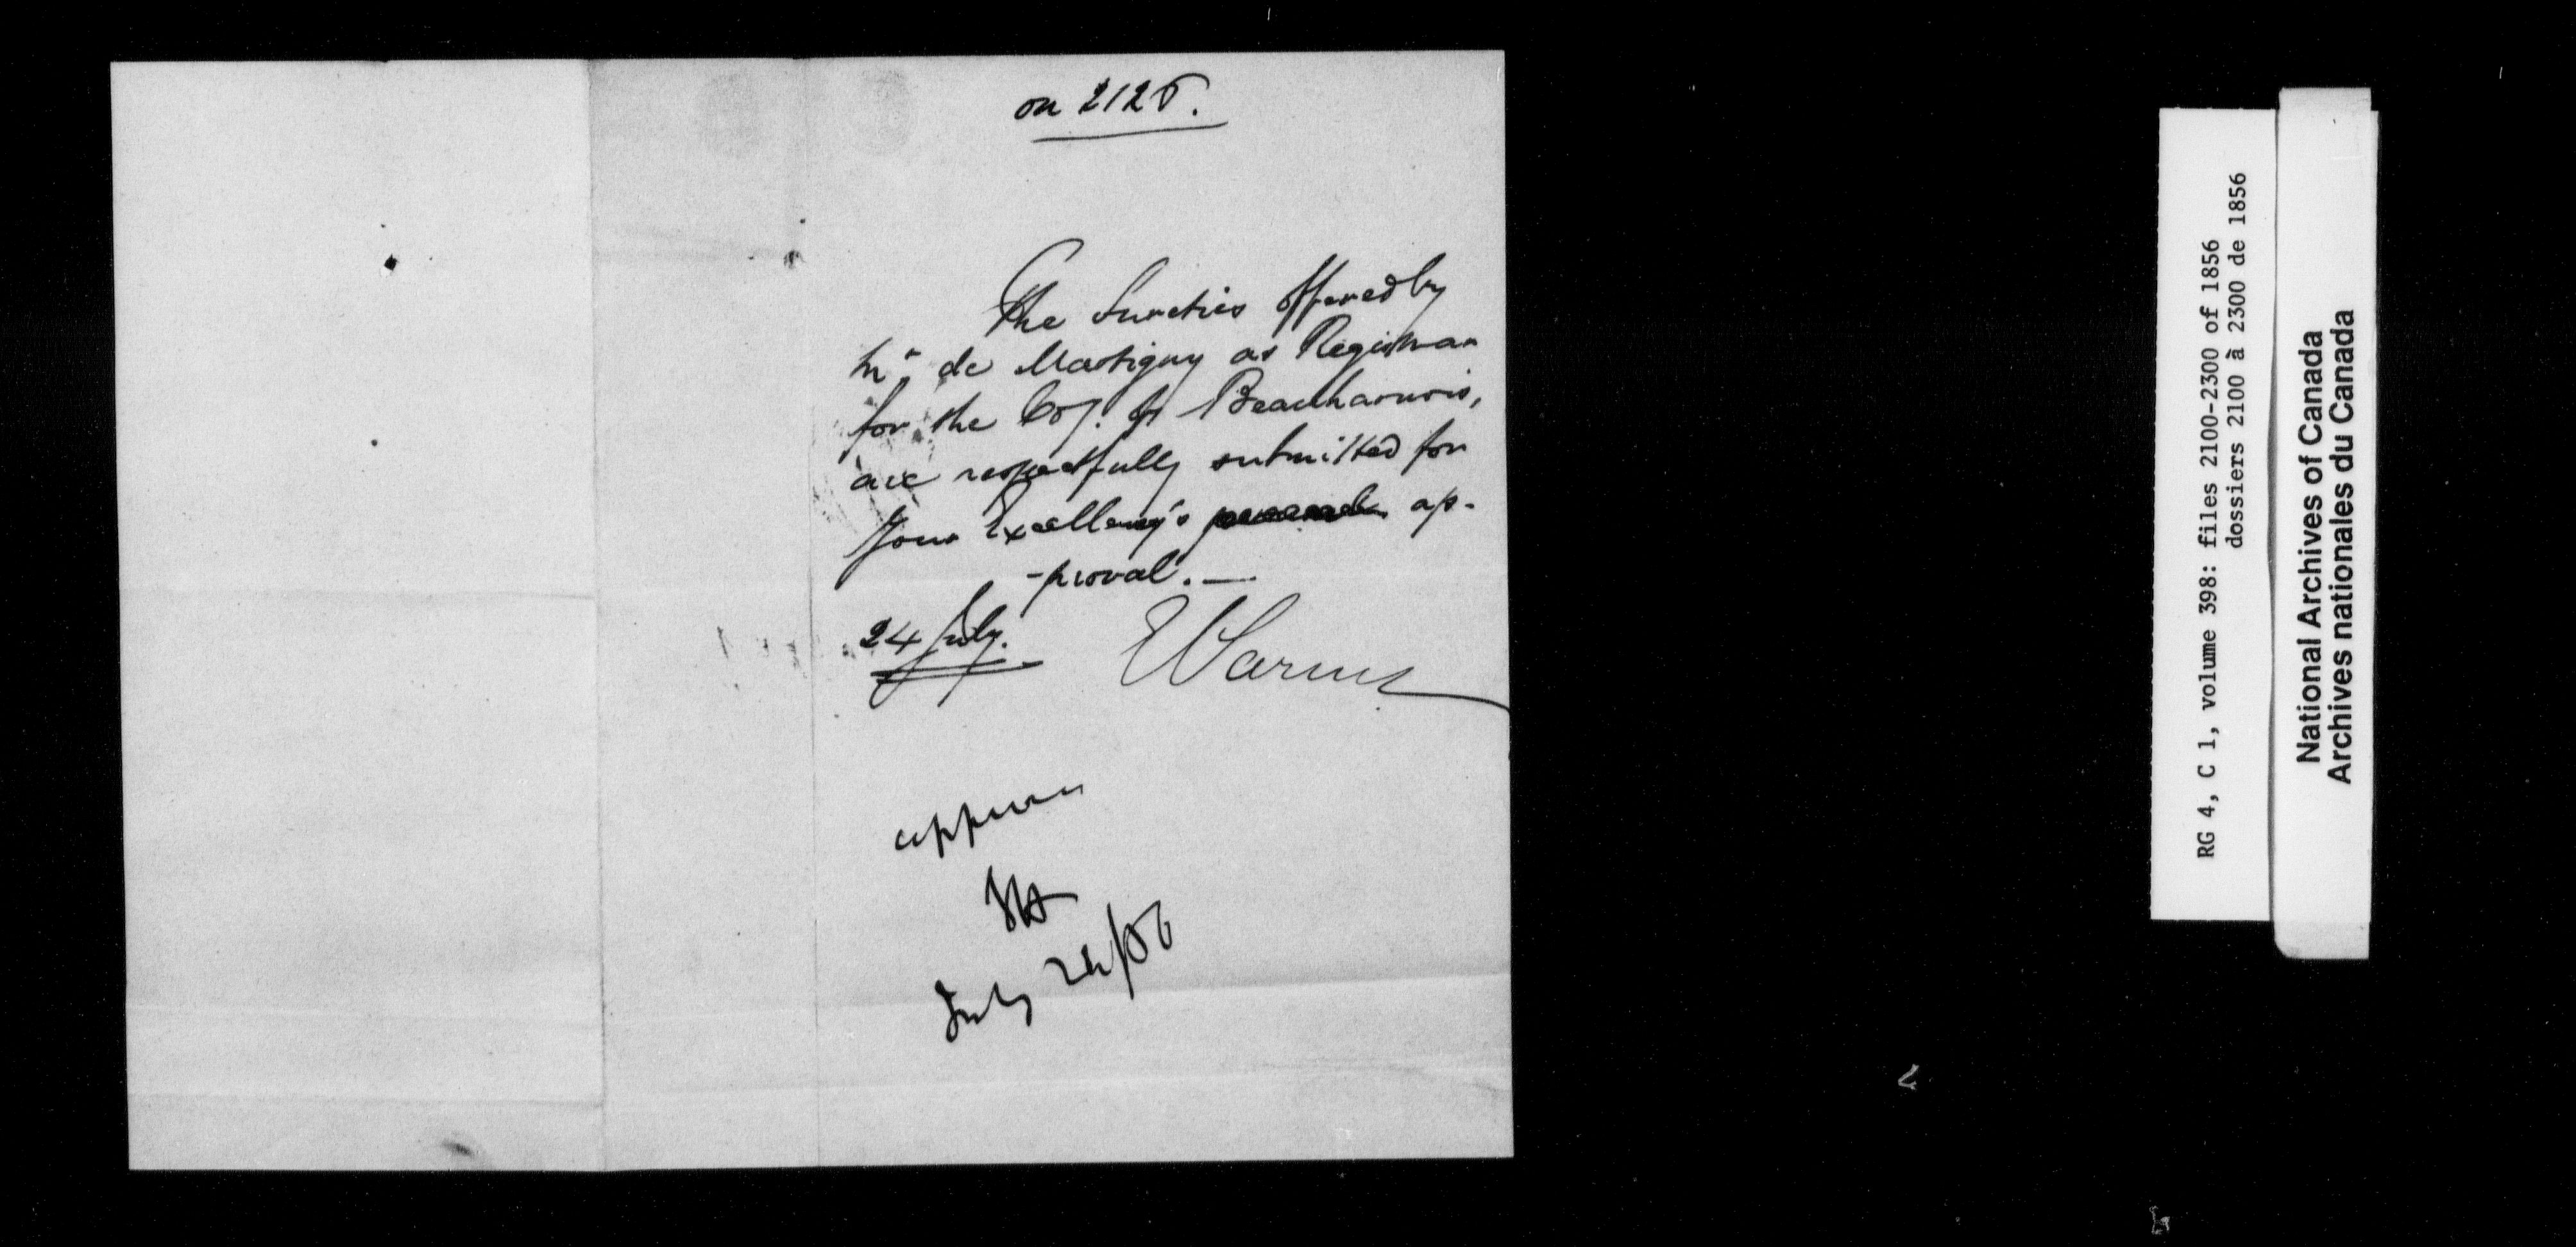 on 2125.
The Sureties offered by
Mr de Martigny as Registrar
for the Coy. of Beauharnois,
are respectfully submitted for
Your Excellency's ap-
-proval. —
24 July.
approved
July 24/56
RG 4, C 1, volume 398: files 2100-2300 of 1856
dossiers 2100 à 2300 de 1856
National Archives of Canada
Archives nationales du Canada